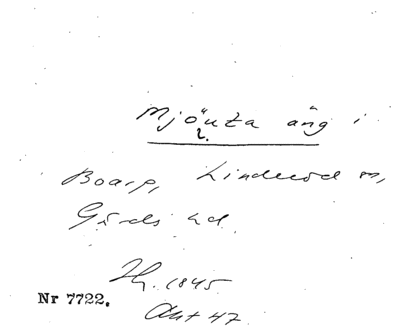 Mjönza äng i
2.
Boarp, Linderöd sn,
Gärds hd.
1845.
Nr 7722.
Akt 47